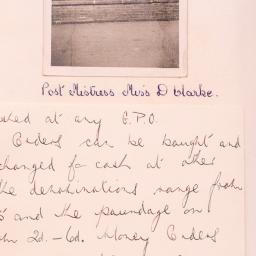 Post Mistress Miss D Clarke.
shed at any G.P.O.
Orders can be bought and
changed for cash at other
the denominations range from
and the poundage on
2d. - 6d. Money Orders